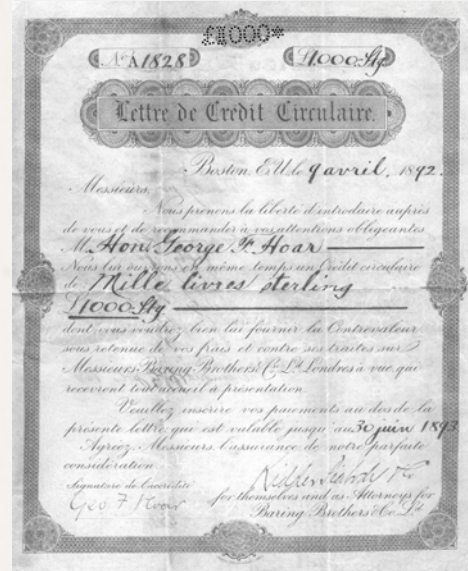 £1000*
No. A1828 £1000 Stg
Lettre de Crédit Circulaire.
Boston, E.U. le 9 avril, 1892.
Messieurs,
Nous prenons la liberté d'introduire auprès
de vous et de recommander à vos attentions obligeantes
M. Hon. George F. Hoar
Nous lui ouvrons en même temps un Crédit circulaire
de Mille livres sterling
£1000 Stg.
dont vous voudrez bien lui fournir la Contrevaleur
sous retenue de vos frais et contre ses traites sur
Messieurs Baring Brothers & Co. Ld. Londres à vue qui
recevront tout accueil à présentation.
Veuillez inscrire vos paiements au dos de la
présente lettre qui est valable jusqu'au 30 juin 1893
Agréez, Messieurs, l'assurance de notre parfaite
considération
Signature de l'accrédité Kidder Peabody & Co
Geo F Hoar for themselves and as Attorneys for
Baring Brothers & Co. Ld.